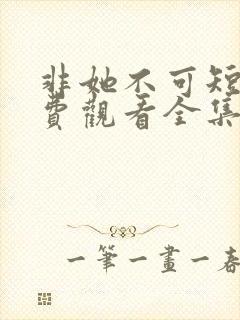 非她不可短
費觀看全集
一筆一畫一春